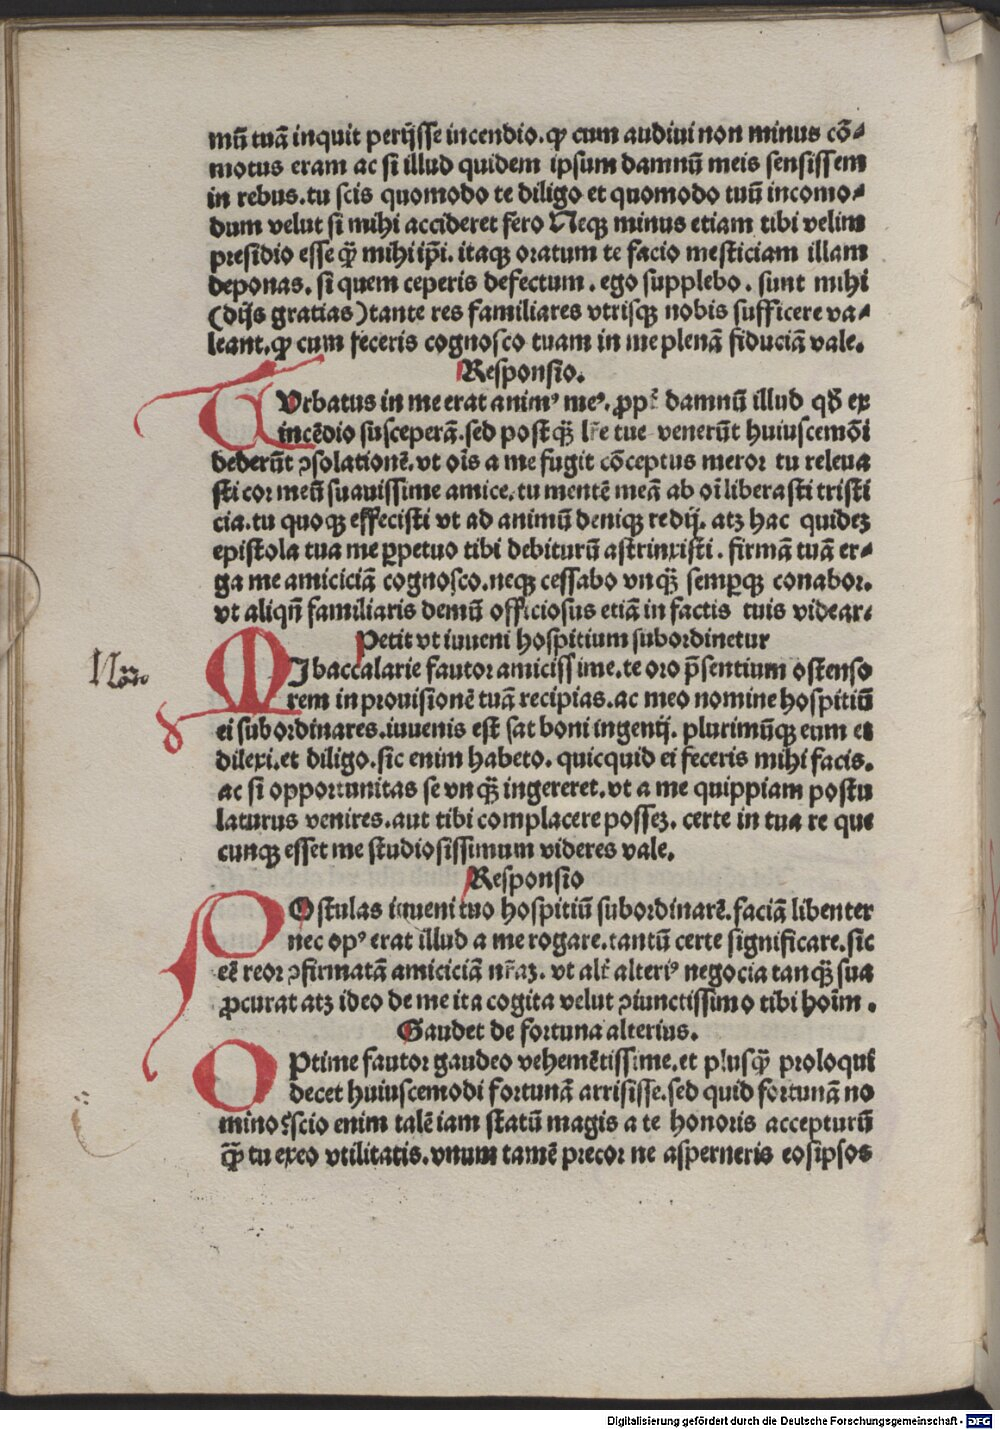 mū tuā inquit perijsse incendio. ꝙ cum audiui non minus cō⸗
motus eram ac si illud quidem ipsum damnū meis sensissem
in rebus. tu scis quomodo te diligo et quomodo tuū incomo⸗
dum velut si mihi accideret fero Neqꝫ minus etiam tibi velim
presidio esse qꝫ̄ mihi ip̄i. itaqꝫ oratum te facio mesticiam illam
deponas. si quem ceperis defectum. ego supplebo. sunt mihi
(dijs gratias) tante res familiares vtrisqꝫ nobis sufficere va⸗
leant. ꝙ cum feceris cognosco tuam in me plenā fiduciā vale.
Responsio.
TVrbatus in me erat animꝰ meꝰ. ꝓpt̄ damnū illud qd̄ ex
incēdio susceperā. sed postqꝫ̄ lr̄e tue venerūt huiuscemōi
dederūt ꝯsolationē. vt oīs a me fugit cōceptus meror tu releua
sti cor meū suauissime amice. tu mentē meā ab oī liberasti tristi
cia. tu quoqꝫ effecisti vt ad animū deniqꝫ redij. atꝫ hac quideꝫ
epistola tua me ꝑpetuo tibi debiturū astrinxisti. firmā tuā er⸗
ga me amiciciā cognosco. neqꝫ cessabo vnqꝫ̄ semꝑqꝫ conabor.
vt aliqn̄ familiaris demū officiosus etiā in factis tuis videar.
Petit vt iuueni hospitium subordinetur
MI baccalarie fautor amicissime. te oro p̄sentium ostenso
rem in prouisionē tuā recipias. ac meo nomine hospitiū
ei subordinares. iuuenis est sat boni ingenij. plurimūqꝫ eum et
dilexi. et diligo. sic enim habeto. quicquid ei feceris mihi facis.
ac si opportunitas se vnqꝫ̄ ingereret. vt a me quippiam postu
laturus venires. aut tibi complacere posseꝫ. certe in tua re que
cunqꝫ esset me studiosissimum videres vale.
Responsio
POstulas iuueni tuo hospitiū subordinarē. faciā libenter
nec opꝰ erat illud a me rogare. tantū certe significare. sic
eē reor ꝯfirmatā amiciciā nr̄aꝫ. vt alt̄ alteriꝰ negocia tanqꝫ̄ sua
ꝓcurat atꝫ ideo de me ita cogita velut ꝯiunctissimo tibi hoīm.
Gaudet de fortuna alterius.
OPtime fautor gaudeo vehemētissime. et plusqꝫ̄ proloqui
decet huiuscemodi fortunā arrisisse. sed quid fortunā no
mino? scio enim talē iam statū magis a te honoris accepturū
qꝫ̄ tu ex eo vtilitatis. vnum tamē precor ne asperneris eosipsos
Digitalisierung gefördert durch die Deutsche Forschungsgemeinschaft - DFG